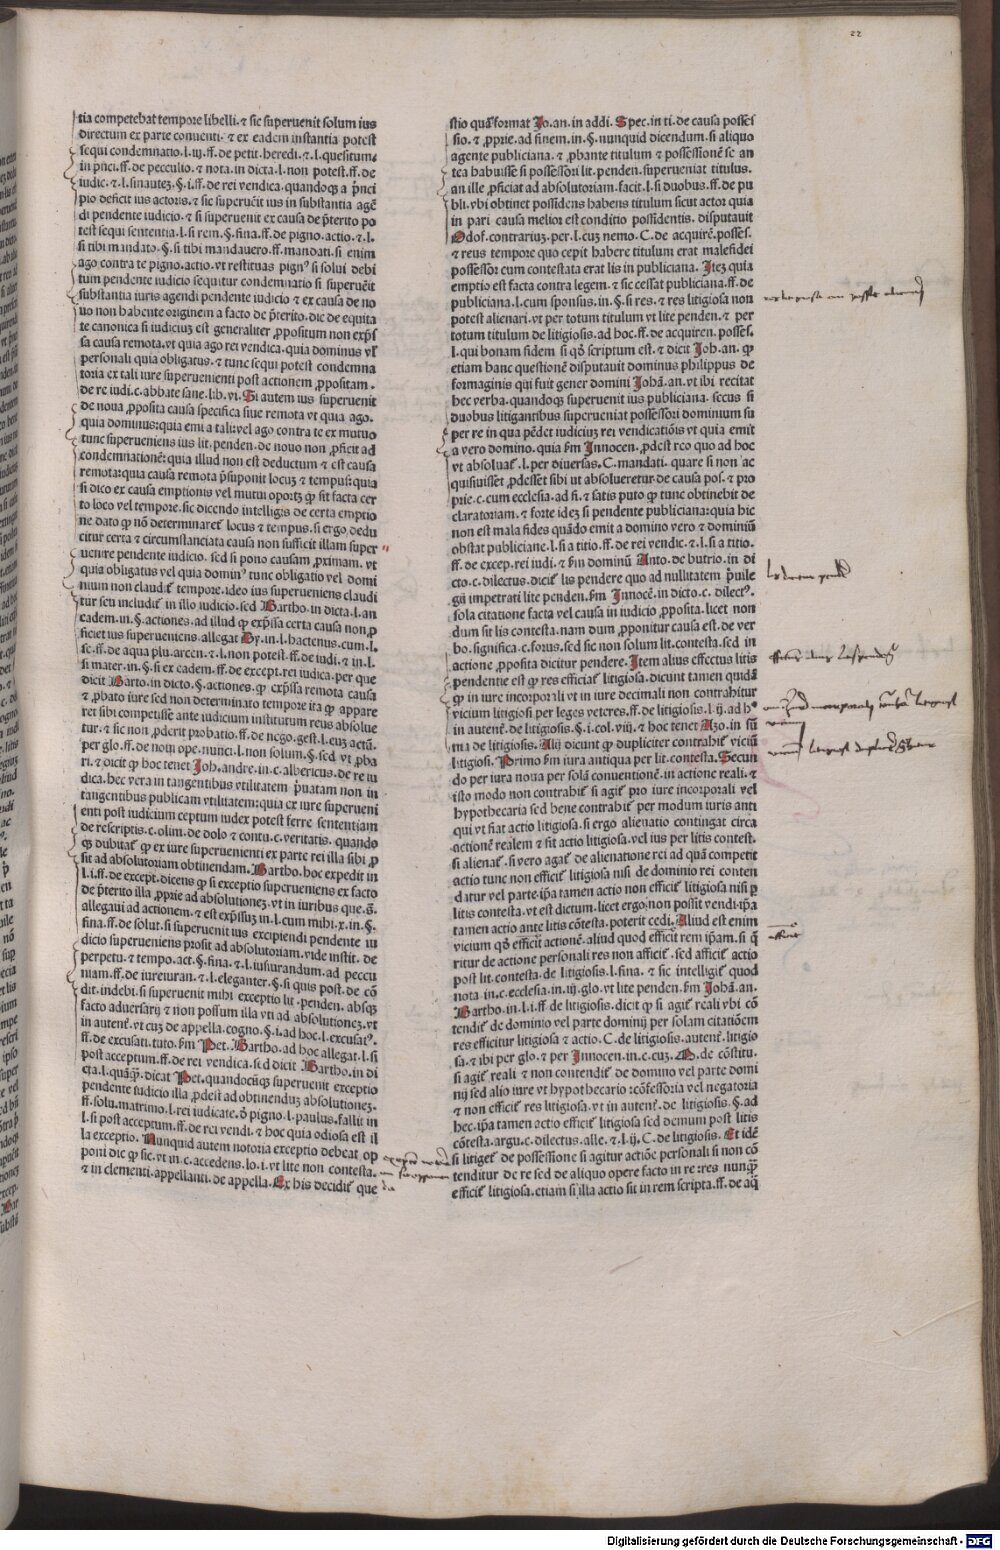 22
tia competebat tempore libelli. ⁊ sic superuenit solum ius
directum ex parte conuenti. ⁊ ex eadem instantia potest
sequi condemnatio. l. iij. ff. de petit. heredi. ⁊. l. quesitum.
in p̄nci. ff. de pecculio. ⁊ nota. in dicta. l. non potest. ff. de
iudic. ⁊. l. si nautez. §. i. ff. de rei vendica. quandoqꝫ a p̄nci
pio deficit ius actoris. ⁊ sic superuēit ius in substantia agē
di pendente iudicio. ⁊ si superuenit ex causa de p̄terito po
test sequi sententia. l. si rem. §. fina. ff. de pigno. actio. ⁊. l.
si tibi mandato. §. si tibi mandauero. ff. mandati. si enim
ago contra te pigno. actio. vt restituas pignꝰ si solui debi
tum pendente iudicio sequitur condemnatio si superuēit
substantia iuris agendi pendente iudicio ⁊ ex causa de no
uo non habente originem a facto de p̄terito. dic de equita
te canonica si iudiciuꝫ est generaliter ꝓpositum non exp̄s
sa causa remota. vt quia ago rei vendica. quia dominus vl̄
personali quia obligatus. ⁊ tunc sequi potest condemna
toria ex tali iure superuenienti post actionem ꝓpositam.
de re iudi. c. abbate sane. lib. vi. Si autem ius superuenit
de noua ꝓposita causa specifica siue remota vt quia ago.
quia dominus: quia emi a tali: vel ago contra te ex mutuo
tunc superueniens ius lit. penden. de nouo non ꝓficit ad
condemnationē: quia illud non est deductum ⁊ est causa
remota: quia causa remota p̄suponit locuꝫ ⁊ tempus: quia
si dico ex causa emptionis vel mutui oportꝫ ꝙ sit facta cer
to loco vel tempore. sic dicendo intelligis de certa emptio
ne dato ꝙ nō determinaret̄ locus ⁊ tempus. si ergo dedu
citur certa ⁊ circumstanciata causa non sufficit illam super
uenire pendente iudicio. sed si pono causam ꝓximam. vt
quia obligatus vel quia dominꝰ tunc obligatio vel domi
nium non claudit̄ tempore. ideo ius superueniens claudi
tur seu includit̄ in illo iudicio. sed Bartho. in dicta. l. an
eadem. in. §. actiones. ad illud ꝙ exp̄ssa certa causa non ꝓ
ficiet ius superueniens. allegat Dy. in. l. hactenus. cum. l.
se. ff. de aqua plu. arcen. ⁊. l. non potest. ff. de iudi. ⁊ in. l.
si mater. in. §. si ex eadem. ff. de except. rei iudica. per que
dicit Barto. in dicto. §. actiones. ꝙ exp̄ssa remota causa
⁊ ꝓbato iure sed non determinato tempore ita ꝙ appare
ret sibi competisse ante iudicium institutum reus absolue
tur. ⁊ sic non ꝓderit probatio. ff. de nego. gest. l. euꝫ actū.
per glo. ff. de noui ope. nunci. l. non solum. §. sed vt ꝓba
ri. ⁊ dicit ꝙ hoc tenet Joh. andre. in. c. albericus. de re iu
dica. hec vera in tangentibus vtilitatem p̄uatam non in
tangentibus publicam vtilitatem: quia ex iure superueni
enti post iudicium ceptum iudex potest ferre sententiam
de rescriptis. c. olim. de dolo ⁊ contu. c. veritatis. quando
qꝫ dubitat̄ ꝙ ex iure superuenienti ex parte rei illa sibi ꝓ
sit ad absolutoriam obtinendam. Bartho. hoc expedit in
l. i. ff. de except. dicens ꝙ si exceptio superueniens ex facto
de p̄terito illa ꝓprie ad absolutionez. vt in iuribus que. ā.
allegaui ad actionem. ⁊ est exp̄ssuꝫ in. l. cum mihi. x. in. §.
fina. ff. de solut. si superuenit ius excipiendi pendente iu
dicio superueniens prosit ad absolutoriam. vide instit. de
perpetu. ⁊ tempo. act. §. fina. ⁊. l. iusiurandum. ad peccu
niam. ff. de iureiuran. ⁊. l. eleganter. §. si quis post. de cō
dit. indebi. si superuenit mihi exceptio lit. penden. absqꝫ
facto aduersarij ⁊ non possum illa vti ad absolutionez. vt
in autenē. vt cuꝫ de appella. cogno. §. i. ad hoc. l. excusatꝰ.
ff. de excusati. tuto. ẜm Pet. Bartho. ad hoc allegat. l. si
post acceptum. ff. de rei vendica. sed dicit Bartho. in di
cta. l. quāꝙ. dicat Pet. quandocūqꝫ superuenit exceptio
pendente iudicio illa ꝓdest ad obtinenduꝫ absolutionez.
ff. solu. matrimo. l. rei iudicate. ꝙ pigno. l. paulus. fallit in
l. si post acceptum. ff. de rei vendi. ⁊ hoc quia odiosa est il
la exceptio. Nunquid autem notoria exceptio debeat op
poni dic ꝙ sic. vt in. c. accedens. lo. i. vt lite non contesta.
⁊ in clementi. appellanti. de appella. Ex his decidit̄ que
stio quā format Jo. an. in addi. Spec. in ti. de causa posses
sio. ⁊ ꝓprie. ad finem. in. §. nunquid dicendum. si aliquo
agente publiciana. ⁊ ꝓbante titulum ⁊ possessionē se an
tea habuisse si possessori lit. penden. superueniat titulus.
an ille ꝓficiat ad absolutoriam. facit. l. si duobus. ff. de pu
bli. vbi obtinet possidens habens titulum sicut actor quia
in pari causa melior est conditio possidentis. disputauit
Odof. contrariuꝫ. per. l. cuꝫ nemo. C. de acquirē. posses.
⁊ reus tempore quo cepit habere titulum erat malefidei
possessor cum contestata erat lis in publiciana. Iteꝫ quia
emptio est facta contra legem. ⁊ sic cessat publiciana. ff. de
publiciana. l. cum sponsus. in. §. si res. ⁊ res litigiosa non
potest alienari. vt per totum titulum vt lite penden. ⁊ per
totum titulum de litigiosis. ad hoc. ff. de acquiren. posses.
l. qui bonam fidem si qꝫ scriptum est. ⁊ dicit Joh. an. ꝙ
etiam hanc questionē disputauit dominus philippus de
formaginis qui fuit gener domini Johā. an. vt ibi recitat
hec verba. quandoqꝫ superuenit ius publiciana. secus si
duobus litigantibus superueniat possessori dominium su
per re in qua pēdet iudiciuꝫ rei vendicatiōis vt quia emit
a vero domino. quia ẜm Innocen. ꝓdest reo quo ad hoc
vt absoluat̄. l. per diuersas. C. mandati. quare si non ac
quisiuisset ꝓdesset sibi ut absolueretur. de causa pos. ⁊ pro
prie. c. cum ecclesia. ad fi. ⁊ satis puto ꝙ tunc obtinebit de
claratoriam. ⁊ forte ideꝫ si pendente publiciana: quia hic
non est mala fides quādo emit a domino vero ⁊ dominiū
obstat publiciane. l. si a titio. ff. de rei vendic. ⁊. l. si a titio.
ff. de excep. rei iudi. ⁊ ẜm dominū Anto. de butrio. in di
cto. c. dilectus. dicit̄ lis pendere quo ad nullitatem p̄uile
gij impetrati lite penden. ẜm Innocē. in dicto. c. dilectꝰ.
sola citatione facta vel causa in iudicio ꝓposita. licet non
dum sit lis contesta. nam dum ꝓponitur causa est. de ver
bo. significa. c. forus. sed sic non solum lit. contesta. sed in
actione ꝓposita dicitur pendere. Item alius effectus litis
pendentie est ꝙ res efficiat̄ litigiosa. dicunt tamen quidā
ꝙ in iure incorporali vt in iure decimali non contrahitur
vicium litigiosi per leges veteres. ff. de litigiosis. l. ij. ad hꝰ
in autenē. de litigiosis. §. i. col. viij. ⁊ hoc tenet Azo. in sū
ma de litigiosis. Alij dicunt ꝙ dupliciter contrahit̄ viciū
litigiosi. Primo ẜm iura antiqua per lit. contesta. Secun
do per iura noua per solā conuentionē. in actione reali. ⁊
isto modo non contrahit̄ si agit̄ pro iure incorporali vel
hypothecaria sed bene contrahit̄ per modum iuris anti
qui vt fiat actio litigiosa. si ergo alienatio contingat circa
actionē realem ⁊ sit actio litigiosa. vel ius per litis contest.
si alienat̄. si vero agat̄ de alienatione rei ad quā competit
actio tunc non efficit̄ litigiosa nisi de dominio rei conten
datur vel parte. ip̄a tamen actio non efficit̄ litigiosa nisi ꝑ
litis contesta. vt est dictum. licet ergo non possit vendi. ip̄a
tamen actio ante litis cōtesta. poterit cedi. Aliud est enim
vicium qꝫ efficit actionē. aliud quod efficit rem ip̄am. si q̄
ritur de actione personali res non afficit̄. sed afficit̄ actio
post lit. contesta. de litigiosis. l. fina. ⁊ sic intelligit̄ quod
nota. in. c. ecclesia. in. iij. glo. vt lite penden. ẜm Johā. an.
Bartho. in. l. i. ff. de litigiosis. dicit ꝙ si agit̄ reali vbi cō
tendit̄ de dominio vel parte dominij per solam citatiōem
res efficitur litigiosa ⁊ actio. C. de litigiosis. autenē. litigio
sa. ⁊ ibi per glo. ⁊ per Innocen. in. c. cuꝫ. M. de cōstitu.
si agit̄ reali ⁊ non contendit̄ de dominio vel parte domi
nij sed alio iure vt hypothecario: cōfessoria vel negatoria
⁊ non efficit̄ res litigiosa. vt in autenē. de litigiosis. §. ad
hec. ip̄a tamen actio efficit̄ litigiosa sed demum post litis
cōtesta. argu. c. dilectus. alle. ⁊. l. ij. C. de litigiosis. Et idē
si litiget̄ de possessione si agitur actiōe personali si non cō
tenditur de re sed de aliquo opere facto in re: res nunꝙ̄
efficit̄ litigiosa. etiam si illa actio sit in rem scripta. ff. de aq̄
Digitalisierung gefördert durch die Deutsche Forschungsgemeinschaft - DFG